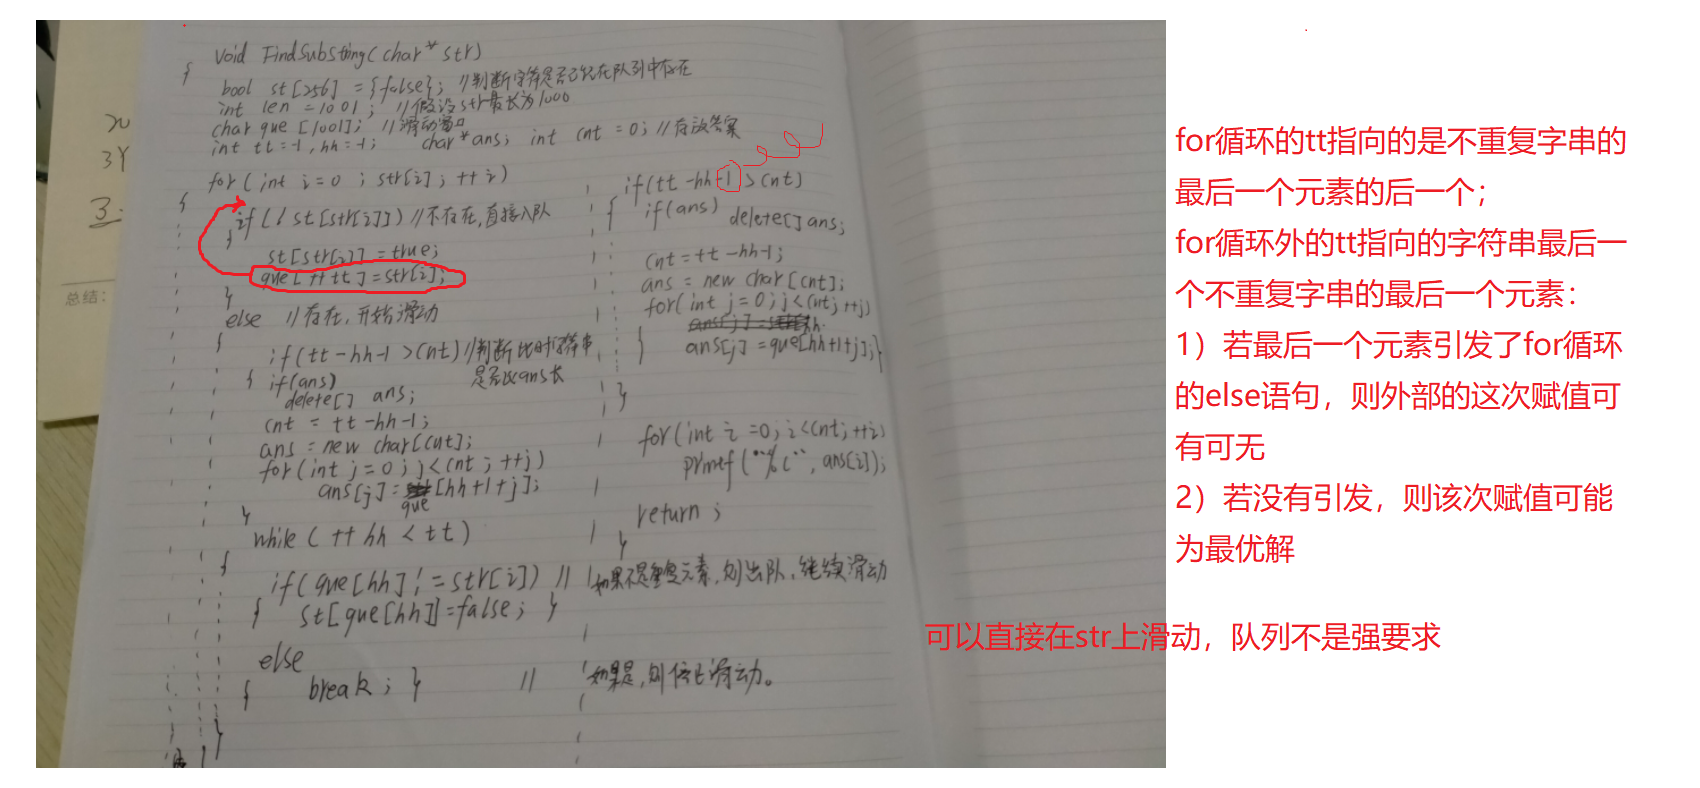 void FindSubString(char* str)
{
bool st[256] = {false}; //判断字符是否已经在队列中存在
int len = 1001; //假设str最长为1000
char que [1001]; //滑动窗口
int tt=-1, hh=-1; char*ans; int cnt = 0; //存放答案
for( int i=0 ; str[i]; ++i)
{
if( ! st[str[i]]) //不存在,直接入队
{
st[str[i]] = true;
que[++tt] = str[i];
}
else //存在,开始滑动
{
if(tt-hh-1 >cnt) //判断此时字符串
是否比ans长
{ if(ans)
delete[] ans;
cnt = tt-hh-1;
ans = new char[cnt];
for(int j=0; j<cnt ; ++j)
ans[j] = que[hh+1+j];
}
while( ++hh < tt)
{
if(que[hh] != str[i]) // 如果不是重复元素,则出队,继续滑动
{ st[que[hh]]=false; }
else
{ break; } // 如果是,则停止滑动。
}
if(tt-hh-1 >cnt)
{ if(ans)
delete[] ans;
cnt = tt-hh-1;
ans = new char[cnt];
for(int j=0; j<cnt; ++j)
ans[j] = que[hh+1+j];}
}
}
for(int i=0; i<cnt; ++i)
printf("%c", ans[i]);
return ;
}
3.
总结:
for循环的tt指向的是不重复字串的
最后一个元素的后一个;
for循环外的tt指向的字符串最后一
个不重复字串的最后一个元素:
1)若最后一个元素引发了for循环
的else语句,则外部的这次赋值可
有可无
2)若没有引发,则该次赋值可能
为最优解
可以直接在str上滑动,队列不是强要求